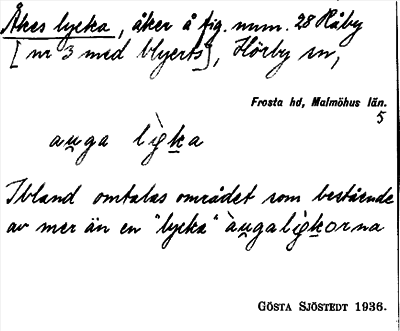 Åkes lycka, åker å fig. num. 28 Råby
[nr 3 med blyerts], Hörby sn,
Frosta hd, Malmöhus län.
5
au̯ga lỳg̥ka
Ibland omtalas området som bestående
av mer än en "lycka" àu̯galìg̥korna
GÖSTA SJÖSTEDT 1936.